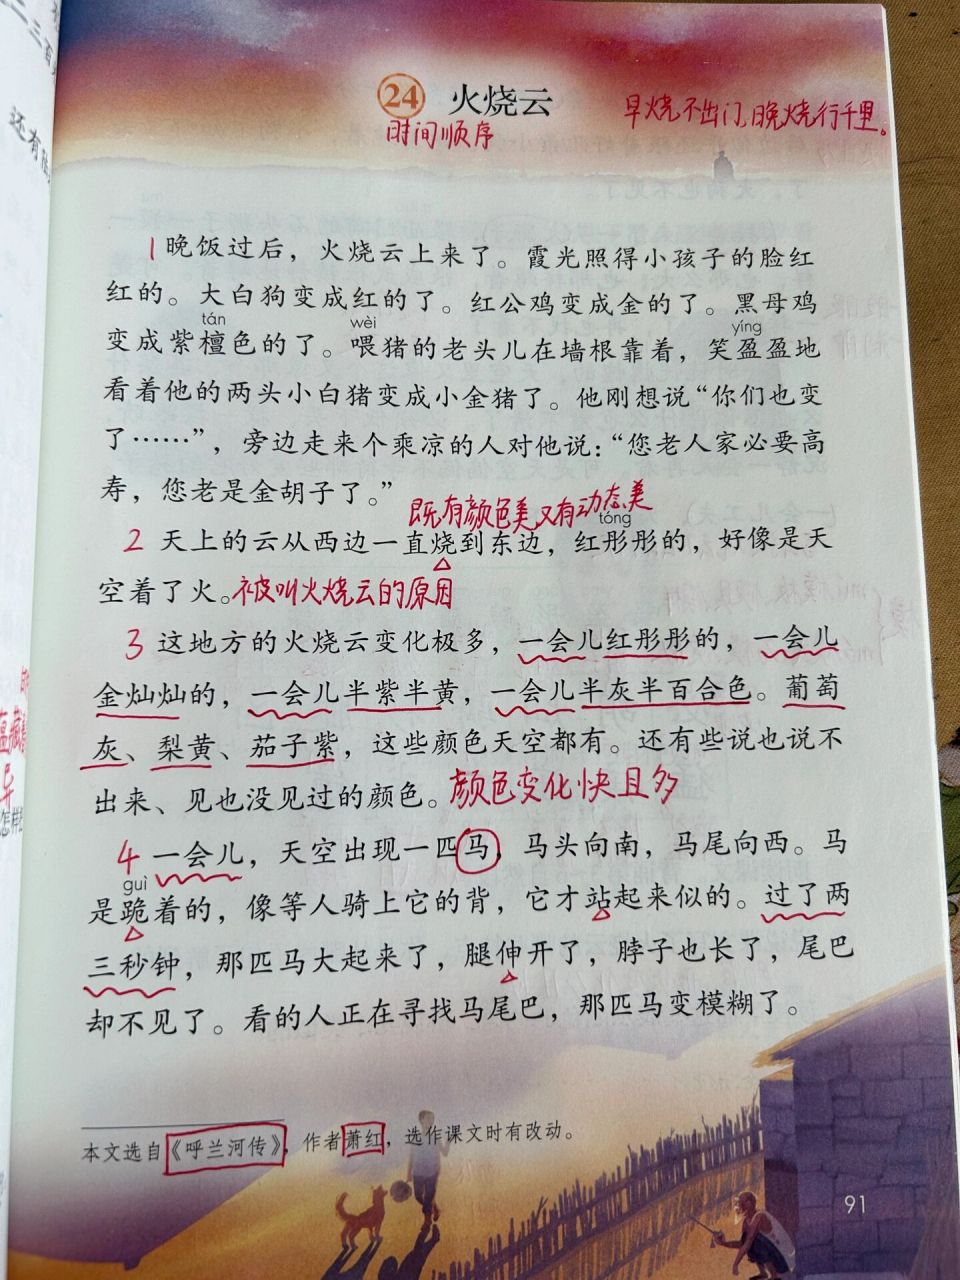 还有
24 火烧云
时间顺序
早烧不出门,晚烧行千里。
1晚饭过后，火烧云上来了。霞光照得小孩子的脸红
红的。大白狗变成红的了。红公鸡变成金的了。黑母鸡
tán wèi yíng
变成紫檀色的了。喂猪的老头儿在墙根靠着，笑盈盈地
看着他的两头小白猪变成小金猪了。他刚想说“你们也变
了……”，旁边走来个乘凉的人对他说：“您老人家必要高
寿，您老是金胡子了。”
既有颜色美又有动态美
tóng
2 天上的云从西边一直烧到东边，红彤彤的，好像是天
空着了火。被叫火烧云的原因
3 这地方的火烧云变化极多，一会儿红彤彤的，一会儿
金灿灿的，一会儿半紫半黄，一会儿半灰半百合色。葡萄
灰、梨黄、茄子紫，这些颜色天空都有。还有些说也说不
出来、见也没见过的颜色。颜色变化快且多
4 一会儿，天空出现一匹马，马头向南，马尾向西。马
guì
是跪着的，像等人骑上它的背，它才站起来似的。过了两
三秒钟，那匹马大起来了，腿伸开了，脖子也长了，尾巴
却不见了。看的人正在寻找马尾巴，那匹马变模糊了。
本文选自《呼兰河传》，作者萧红，选作课文时有改动。
91